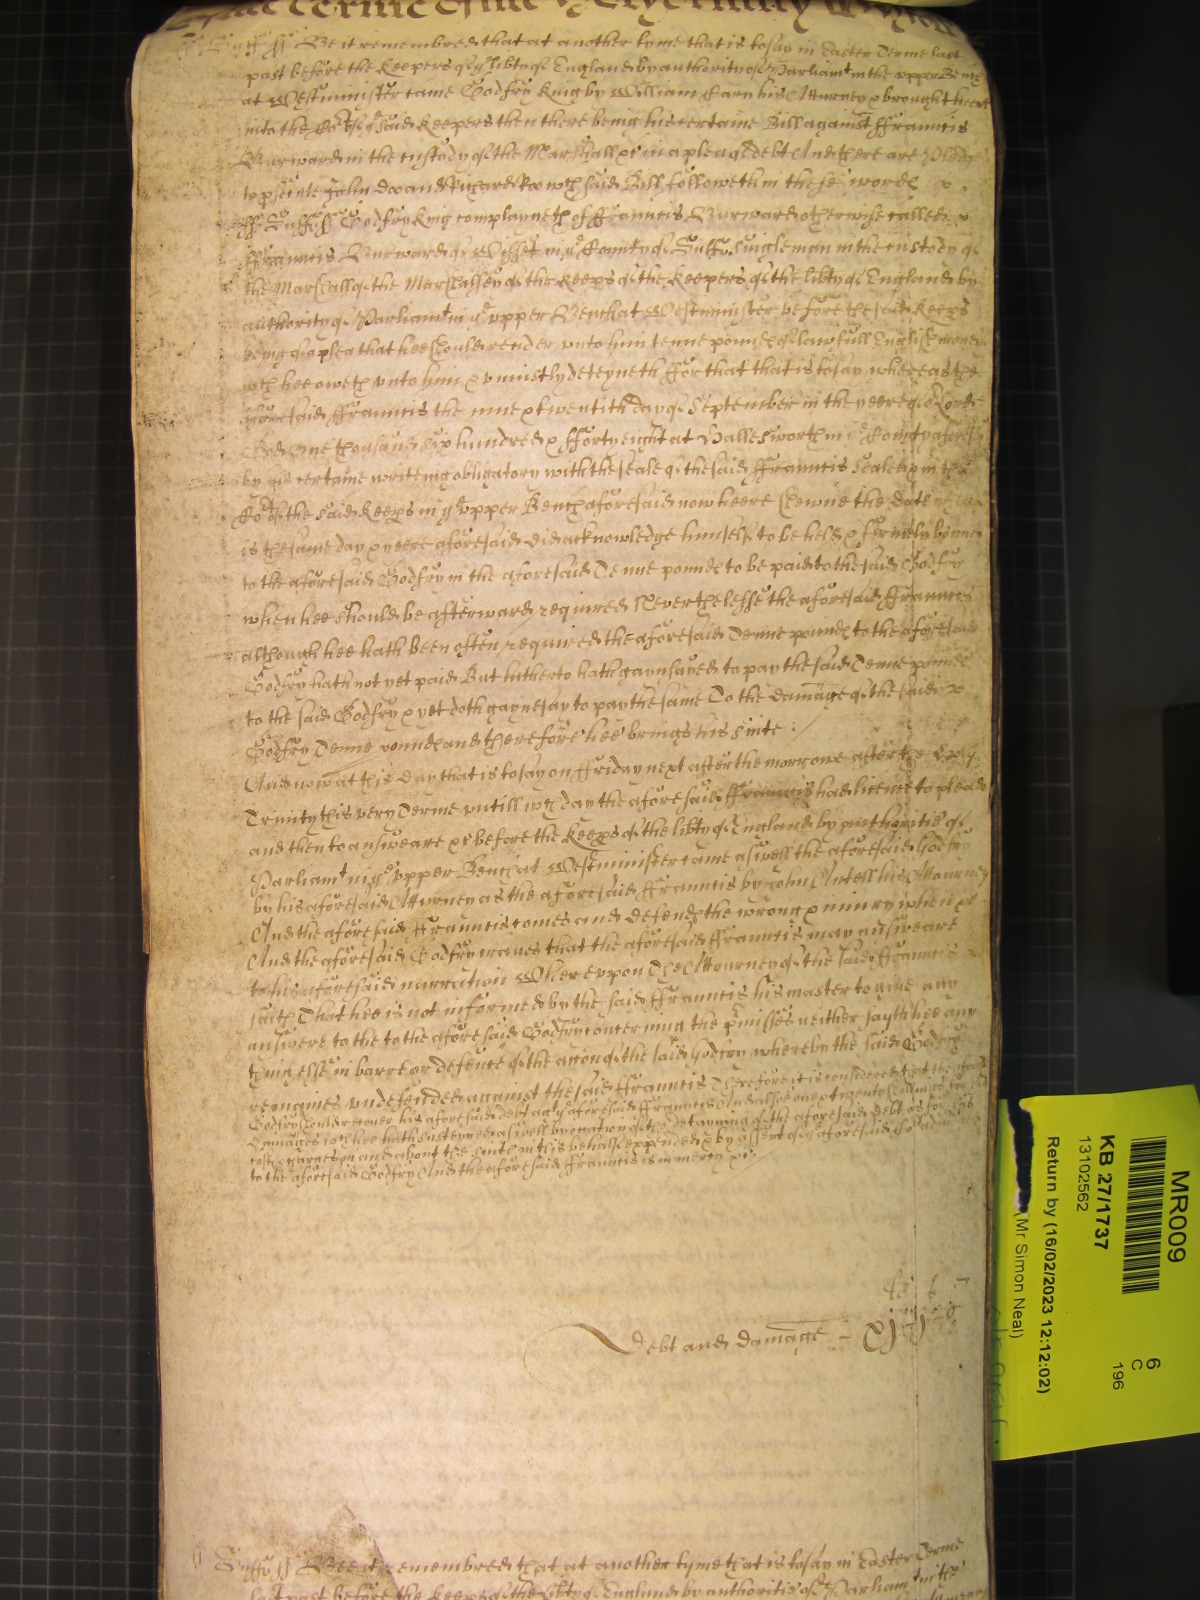 Suff ss Be it remembred that at another tyme that is to say in Easter Terme last
past before the Keepers of ye libty of England by authority of Parliamt in the upper Bench
at Westminister came Godfry King by William his Atturney & brought heere
into the Cot of ye said Keepers then there being his certaine Bill against Ffrauncis
Burward in the custody of the Marshall &c in a plea of debt And there are Pledg
to psecute John Doo and Richard Roo wch said Bill followeth in these wordℓ
ss Suff ss Godfry King complayneth of Ffrauncis Burward otherwise called
Ffrauncis Burward of Wisset in ye County of Suff. Singleman in the custody of
the Marshall of the Marshalsey of the Keeps of the Keepers of the libty of England by
authority of Parliamt in ye upper Bench at Westminister before the said Keeps
being of a plea that hee should render unto him tenne poundℓ of lawfull English money
wch hee oweth unto him & uniustly deteyneth Ffor that that is to say whereas the
aforesaid Ffrauncis the nine & twentith day of September in the yeere of o Lorde
God one thousand six hundred & fforty eight at Hallesworth in ye County aforesd
by his certaine writeing obligatory with the seale of the said Ffrauncis sealed & in the
Cot of the said Keeps in ye upper Bench aforesaid now heere shewne the date
is the same day & yeere aforesaid did acknowledge himself to be held & firmely bound
to the aforesaid Godfry in the aforesaid Tenne poundℓ to be paid to the said Godfry
when hee should be afterward required Neverthelesse the aforesaid Ffrauncis
although hee hath been often required the aforesaid Tenne poundℓ to the aforesaid
Godfry hath not yet paid But hitherto hath gaynsayed to pay the said Tenne poundℓ
to the said Godfry & yet doth gaynesay to pay the same To the damage of the said
Godfry Tenne poundℓ and therefore hee brings his suite :
And now at this day that is to say on Ffriday next after the morrowe after the Holy
Trinity this very Terme untill wch day the aforesaid Ffrauncis had licence to plead
and then to answeare &c before the Keeps of the libty of England by authoritie of
Parliamt in ye upper Bench at Westminister came aswell the aforesaid Godfry
by his aforesaid Atturney as the aforesaid Ffrauncis by John Antell his Attourney
And the aforesaid Ffrauncis comes and defendℓ the wrong & iniury when &c
And the aforesaid Godfry craves that the aforesaid Ffrauncis may answeare
to his aforesaid narration Whereuppon The Attourney of the said Ffrauncis
saith That hee is not informed by the said Ffrauncis his master to give any
answere to the to the aforesaid Godfry concerning the pmisses neither sayth hee any
thing else in barre or defence of the accon of the said Godfry whereby the said Godfry
remaines undefended against the said Ffrauncis Therefore it is considered that the aforesd
Godfry should recover his aforesaid debt agt ye aforesaid Ffrauncis And alsoe one & twenty shillings for his
damages wch hee hath susteyned aswell by occation of the detayning of the aforesaid debt as for his
costℓ & charges in and about the suite in this behalfe expended & by assent of ye aforesaid Godfry
to the aforesaid Godfry And the aforesaid Ffrauncis is in mercy &c:
Debt and damage - xjli js
Suff ss Bee it remembred that at another tyme that is to say in Easter Terme
last past before the Keeps of the libty of England by authoritie of Parliamt in the
MR009
6
C
196
KB 27/1737
13102562
Return by (16/02/2023 12:12:02)
(Mr Simon Neal)